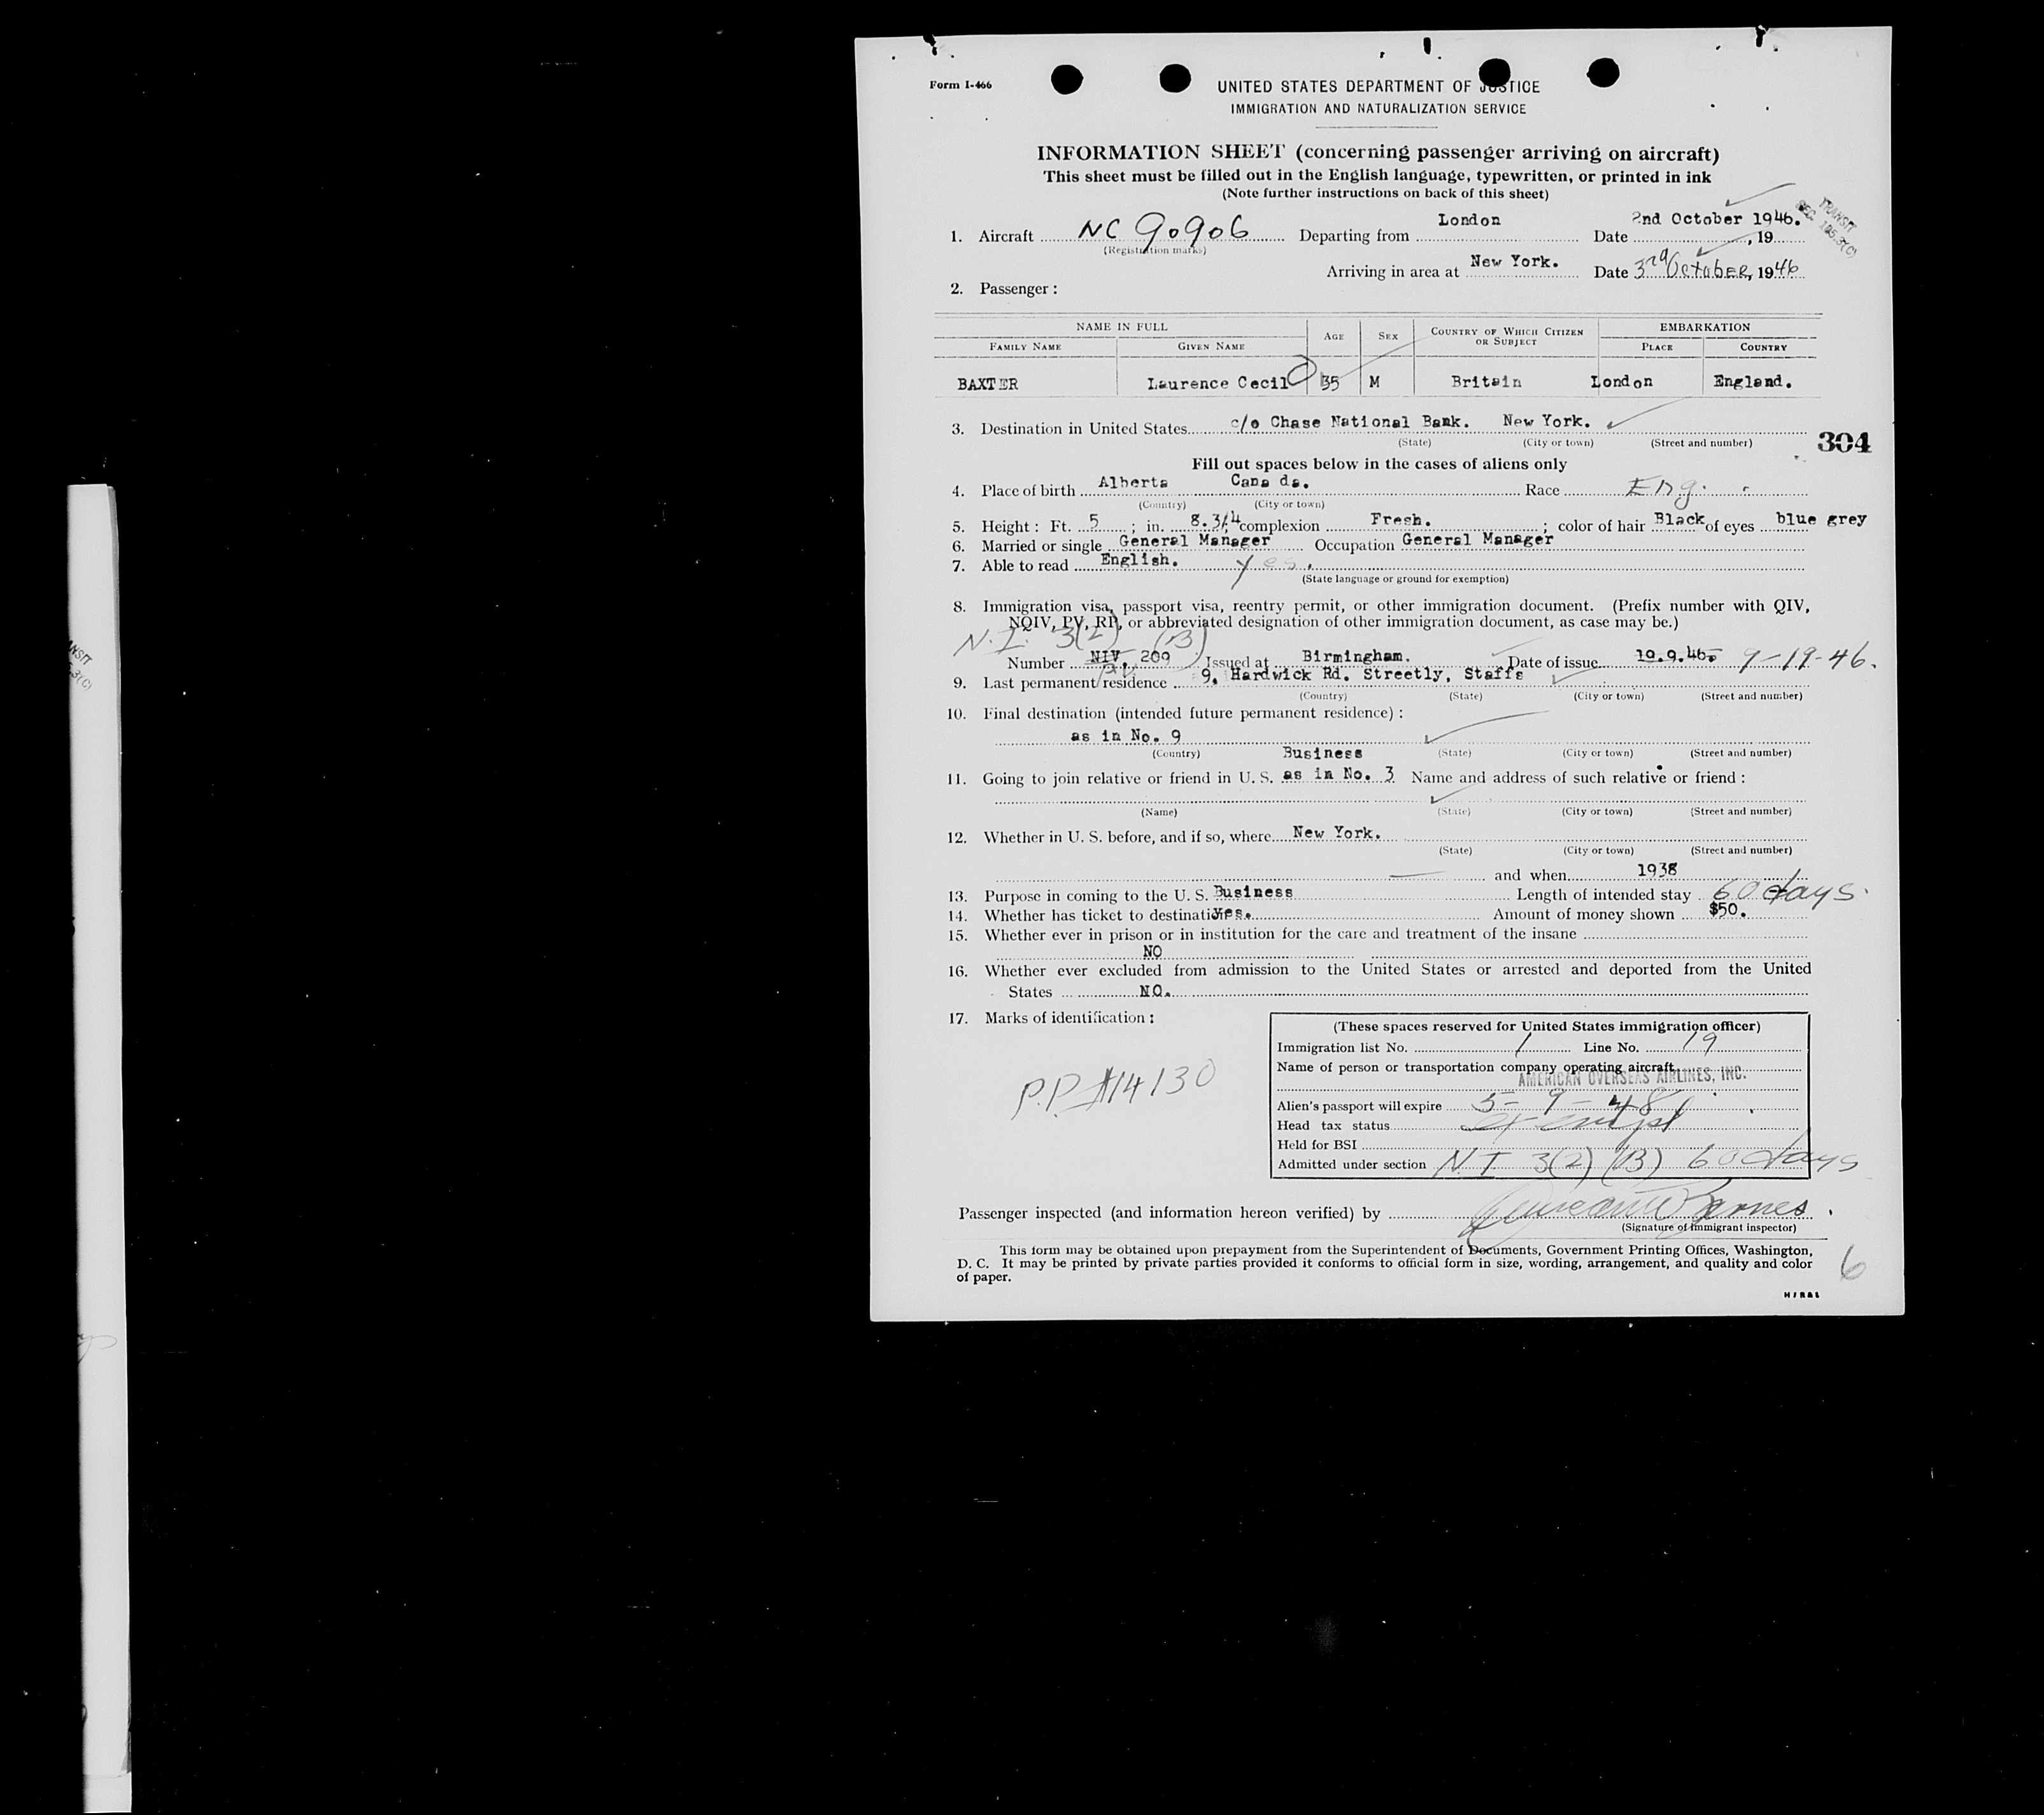 Form I-466
UNITED STATES DEPARTMENT OF JUSTICE
IMMIGRATION AND NATURALIZATION SERVICE
INFORMATION SHEET (concerning passenger arriving on aircraft)
This sheet must be filled out in the English language, typewritten, or printed in ink
(Note further instructions on back of this sheet)
TRANSIT
1. Aircraft NC 90906 Departing from London Date 2nd October 1946. , 19
(Registration marks)
Arriving in area at New York. Date 3rd October, 1946
2. Passenger:
NAME IN FULL AGE SEX COUNTRY OF WHICH CITIZEN OR SUBJECT EMBARKATION
FAMILY NAME GIVEN NAME PLACE COUNTRY
BAXTER Laurence Cecil 35 M Britain London England.
3. Destination in United States c/o Chase National Bank. New York.
(State) (City or town) (Street and number)
304
Fill out spaces below in the cases of aliens only
4. Place of birth Alberta Cana da. Race Eng.
(Country) (City or town)
5. Height: Ft. 5 ; in. 8.3/4 complexion Fresh. ; color of hair Black of eyes blue grey
6. Married or single General Manager Occupation General Manager
7. Able to read English. Yes.
(State language or ground for exemption)
8. Immigration visa, passport visa, reentry permit, or other immigration document. (Prefix number with QIV,
NQIV, PV, RP, or abbreviated designation of other immigration document, as case may be.)
N.I. 3(2) (B)
Number NIV. 209 Issued at Birmingham. Date of issue 19.9.46. 9-19-46.
9. Last permanent residence 9, Hardwick Rd. Streetly, Staffs
(Country) (State) (City or town) (Street and number)
10. Final destination (intended future permanent residence):
as in No. 9
(Country) (State) (City or town) (Street and number)
Business
11. Going to join relative or friend in U. S. as in No. 3 Name and address of such relative or friend:
(Name) (State) (City or town) (Street and number)
12. Whether in U. S. before, and if so, where New York.
(State) (City or town) (Street and number)
and when 1938
13. Purpose in coming to the U. S. Business Length of intended stay 60 days.
14. Whether has ticket to destination Yes. Amount of money shown $50.
15. Whether ever in prison or in institution for the care and treatment of the insane
NO
16. Whether ever excluded from admission to the United States or arrested and deported from the United
States NO.
17. Marks of identification:
P.P. #14130
(These spaces reserved for United States immigration officer)
Immigration list No. 1 Line No. 19
Name of person or transportation company operating aircraft
AMERICAN OVERSEAS AIRLINES, INC.
Alien's passport will expire 5-9-48
Head tax status exempt
Held for BSI
Admitted under section N I 3(2) (B) 60 days
Passenger inspected (and information hereon verified) by Barnes
(Signature of immigrant inspector)
This form may be obtained upon prepayment from the Superintendent of Documents, Government Printing Offices, Washington,
D. C. It may be printed by private parties provided it conforms to official form in size, wording, arrangement, and quality and color
of paper.
6